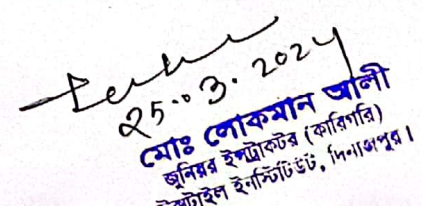 25.03.2024
মোঃ লোকমান আলী
জুনিয়র ইন্সট্রাকটর (কারিগরি)
টেক্সটাইল ইনস্টিটিউট, দিনাজপুর।